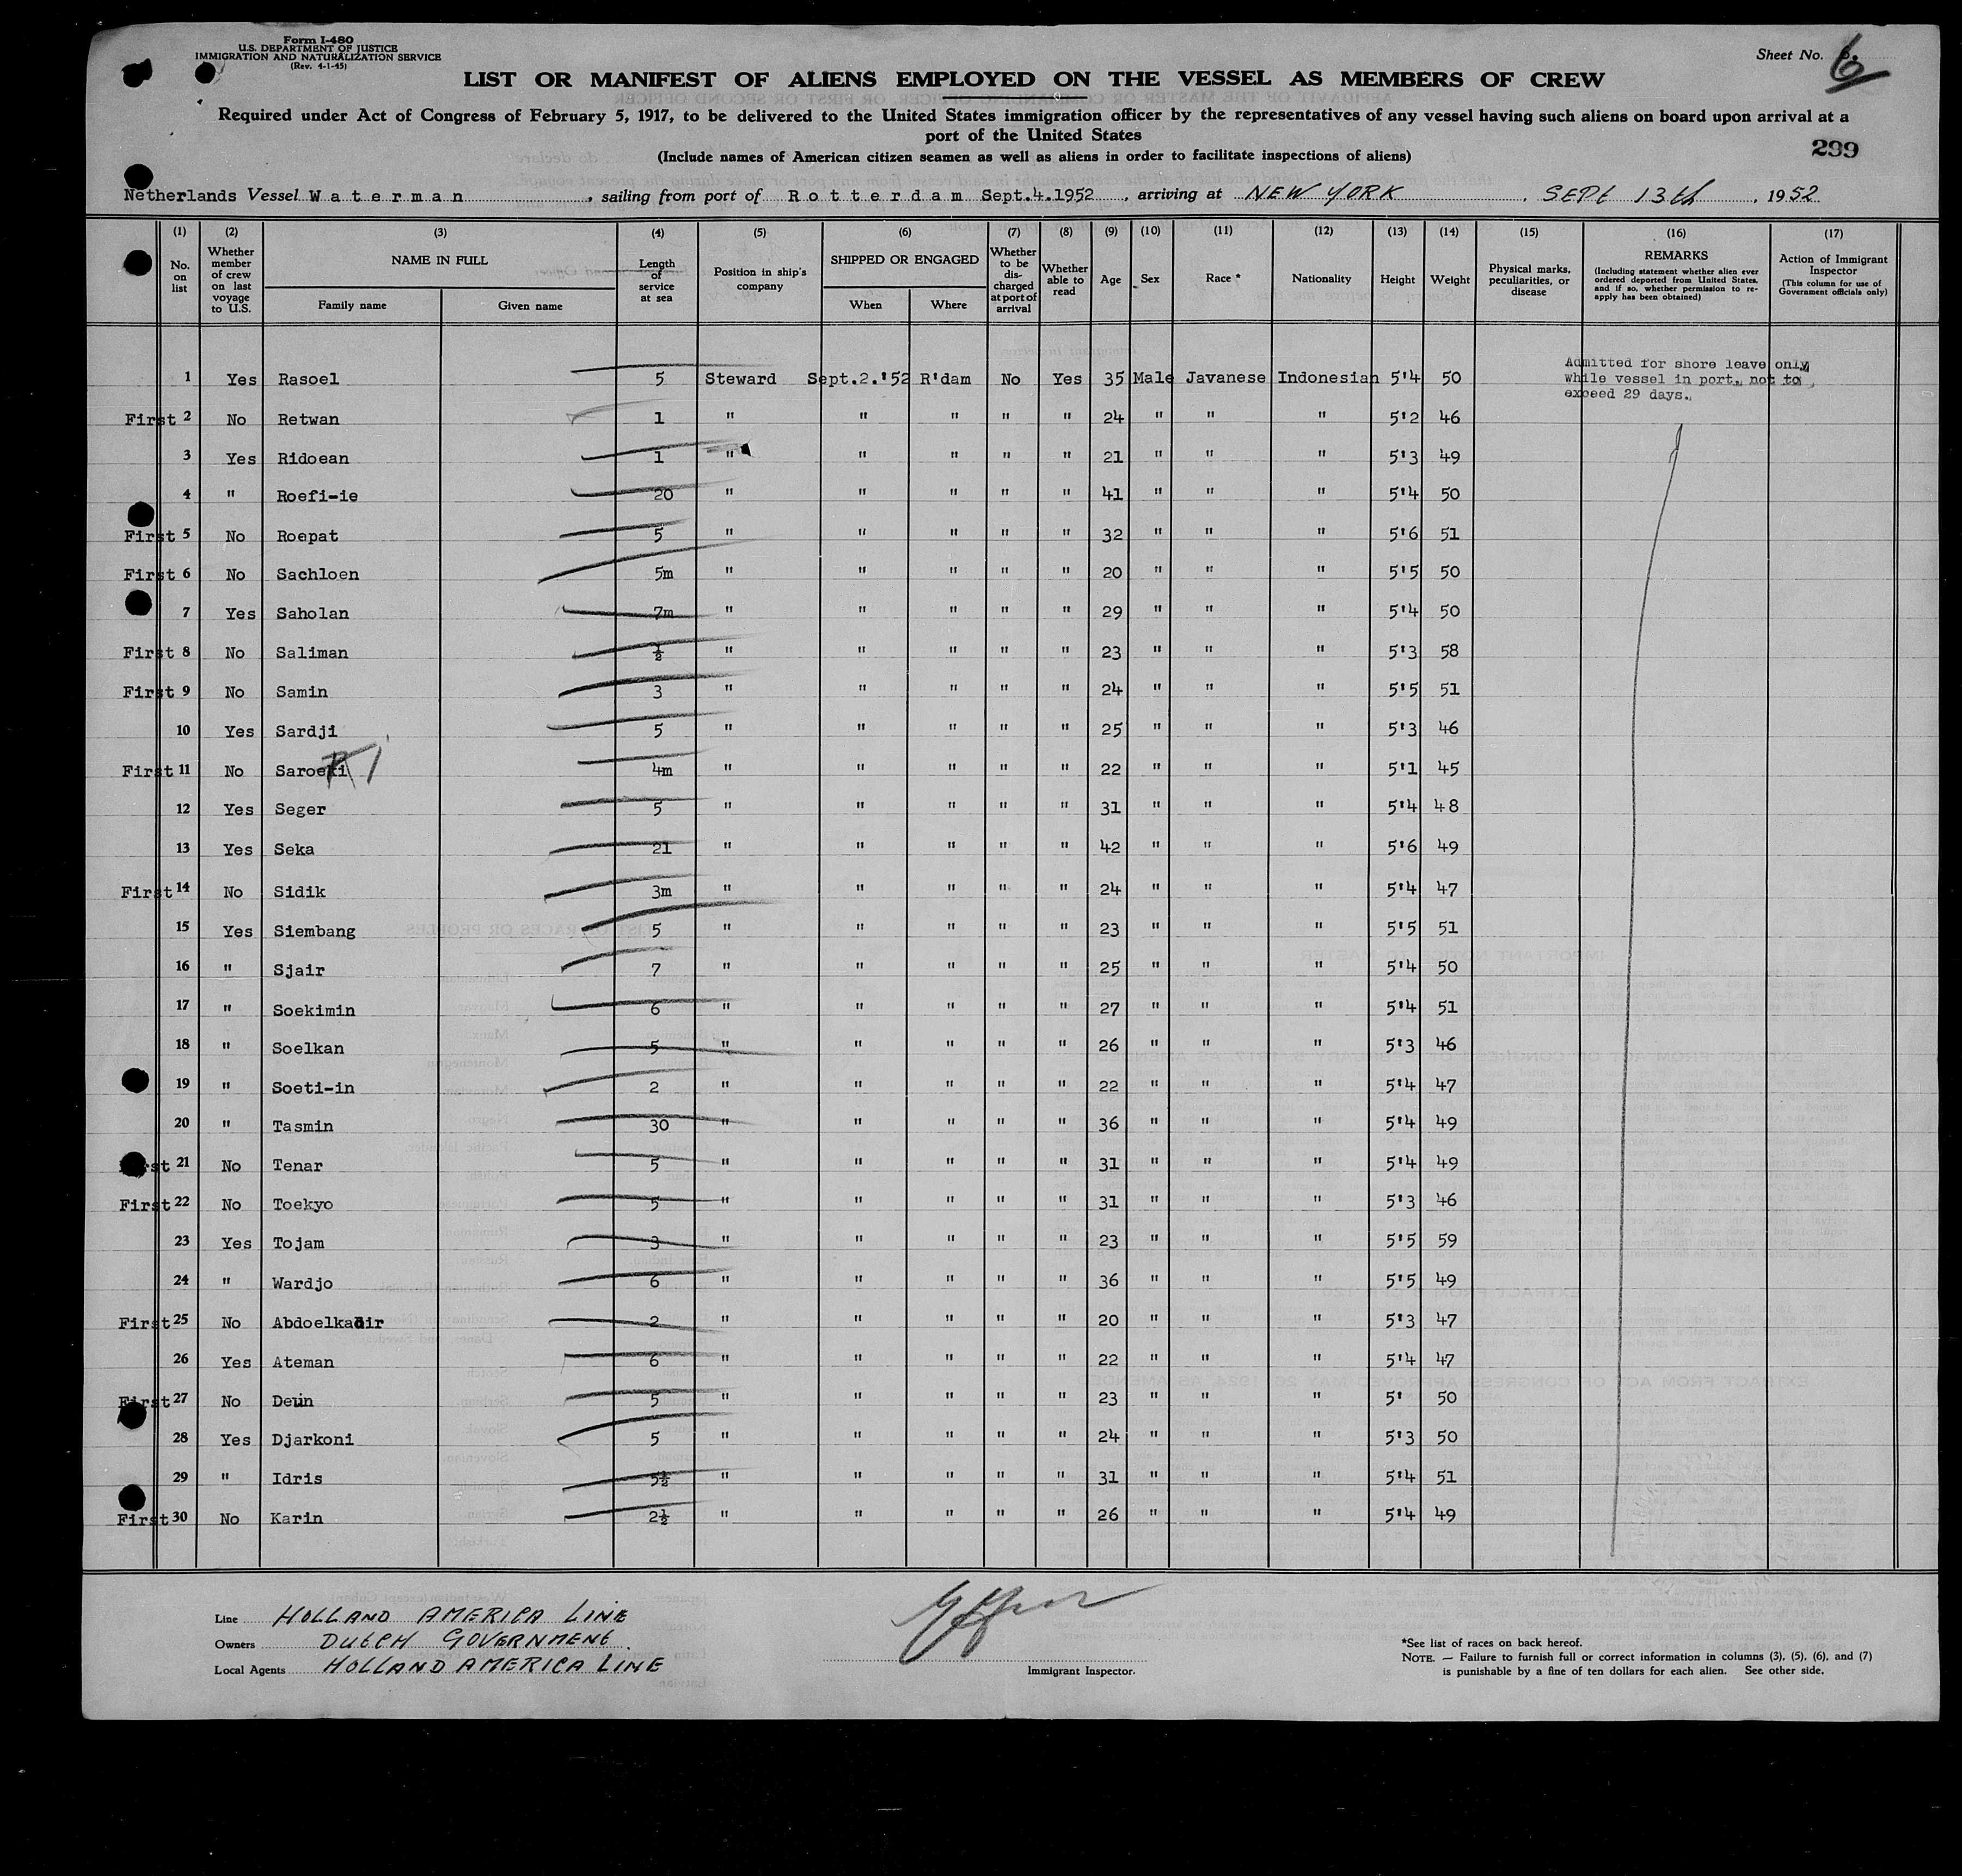 Form I-480
U.S. DEPARTMENT OF JUSTICE
IMMIGRATION AND NATURALIZATION SERVICE
(Rev. 4-1-45)
Sheet No. 6
LIST OR MANIFEST OF ALIENS EMPLOYED ON THE VESSEL AS MEMBERS OF CREW
Required under Act of Congress of February 5, 1917, to be delivered to the United States immigration officer by the representatives of any vessel having such aliens on board upon arrival at a
port of the United States
(Include names of American citizen seamen as well as aliens in order to facilitate inspections of aliens)
299
Netherlands Vessel Waterman, sailing from port of Rotterdam Sept.4.1952, arriving at NEW YORK, SEPt 13th, 1952
(1) (2) (3) (4) (5) (6) (7) (8) (9) (10) (11) (12) (13) (14) (15) (16) (17)
No. on list | Whether member of crew on last voyage to U.S. | NAME IN FULL | Family name | Given name | Length of service at sea | Position in ship's company | SHIPPED OR ENGAGED | When | Where | Whether to be discharged at port of arrival | Whether able to read | Age | Sex | Race * | Nationality | Height | Weight | Physical marks, peculiarities, or disease | REMARKS (Including statement whether alien ever ordered deported from United States, and if so, whether permission to reapply has been obtained) | Action of Immigrant Inspector (This column for use of Government officials only)
1 Yes Rasoel 5 Steward Sept.2.'52 R'dam No Yes 35 Male Javanese Indonesian 5'4 50 Admitted for shore leave only while vessel in port, not to exceed 29 days.
First 2 No Retwan 1 " " " " " 24 " " " 5'2 46
3 Yes Ridoean 1 " " " " " 21 " " " 5'3 49
4 " Roefi-ie 20 " " " " " 41 " " " 5'4 50
First 5 No Roepat 5 " " " " " 32 " " " 5'6 51
First 6 No Sachloen 5m " " " " " 20 " " " 5'5 50
7 Yes Saholan 7m " " " " " 29 " " " 5'4 50
First 8 No Saliman ½ " " " " " 23 " " " 5'3 58
First 9 No Samin 3 " " " " " 24 " " " 5'5 51
10 Yes Sardji 5 " " " " " 25 " " " 5'3 46
First 11 No Saroeki 4m " " " " " 22 " " " 5'1 45
12 Yes Seger 5 " " " " " 31 " " " 5'4 48
13 Yes Seka 21 " " " " " 42 " " " 5'6 49
First 14 No Sidik 3m " " " " " 24 " " " 5'4 47
15 Yes Siembang 5 " " " " " 23 " " " 5'5 51
16 " Sjair 7 " " " " " 25 " " " 5'4 50
17 " Soekimin 6 " " " " " 27 " " " 5'4 51
18 " Soelkan 5 " " " " " 26 " " " 5'3 46
19 " Soeti-in 2 " " " " " 22 " " " 5'4 47
20 " Tasmin 30 " " " " " 36 " " " 5'4 49
First 21 No Tenar 5 " " " " " 31 " " " 5'4 49
First 22 No Toekyo 5 " " " " " 31 " " " 5'3 46
23 Yes Tojam 3 " " " " " 23 " " " 5'5 59
24 " Wardjo 6 " " " " " 36 " " " 5'5 49
First 25 No Abdoelkadir 2 " " " " " 20 " " " 5'3 47
26 Yes Ateman 6 " " " " " 22 " " " 5'4 47
First 27 No Deun 5 " " " " " 23 " " " 5' 50
28 Yes Djarkoni 5 " " " " " 24 " " " 5'3 50
29 " Idris 5½ " " " " " 31 " " " 5'4 51
First 30 No Karin 2½ " " " " " 26 " " " 5'4 49
Line HOLLAND AMERICA LINE
Owners DUTCH GOVERNMENT.
Local Agents HOLLAND AMERICA LINE
Immigrant Inspector.
*See list of races on back hereof.
NOTE. — Failure to furnish full or correct information in columns (3), (5), (6), and (7)
is punishable by a fine of ten dollars for each alien. See other side.